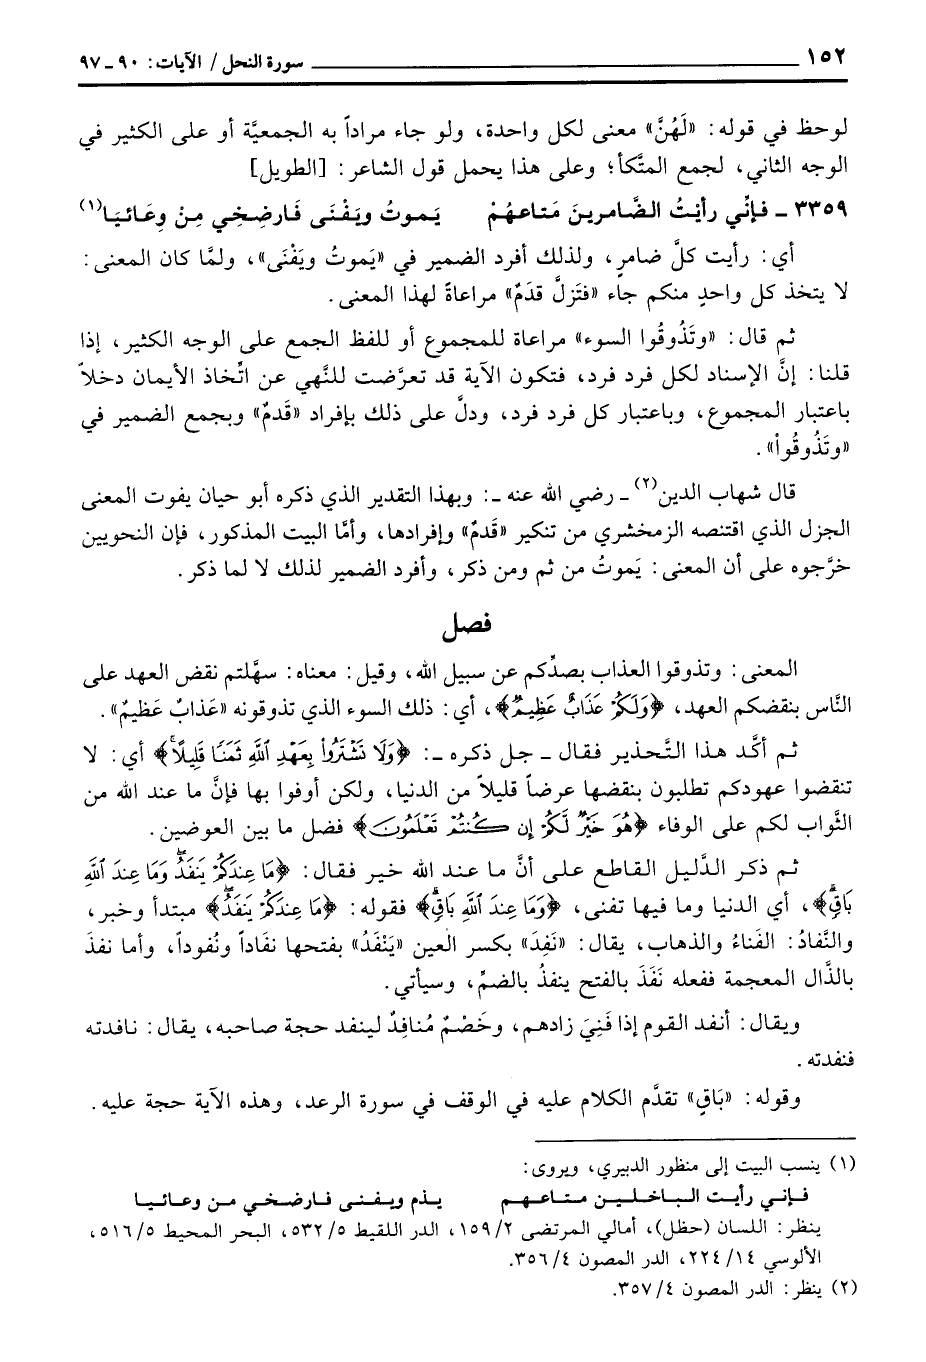 ١٥٢ ــــــ سورة النحل / الآيات: ٩٠ ـ ٩٧
لوحظ في قوله: «لَهُنَّ» معنى لكل واحدة، ولو جاء مراداً به الجمعيَّة أو على الكثير في
الوجه الثاني، لجمع المتَّكأ؛ وعلى هذا يحمل قول الشاعر: [الطويل]
٣٣٥٩ ـ فإنِّي رأيْتُ الضَّامرينَ مَتاعَهُمْ يَموتُ ويَفْنَى فَارضِخِي مِنْ وِعَائيَا(١)
أي: رأيت كلَّ ضامرٍ، ولذلك أفرد الضمير في «يَموتُ ويَفْنَى»، ولمَّا كان المعنى:
لا يتخذ كل واحدٍ منكم جاء «فتَزلَّ قدَمٌ» مراعاةً لهذا المعنى.
ثم قال: «وتَذُوقُوا السوء» مراعاة للمجموع أو للفظ الجمع على الوجه الكثير، إذا
قلنا: إنَّ الإسناد لكل فرد فرد، فتكون الآية قد تعرَّضت للنَّهي عن اتِّخاذ الأيمان دخلاً
باعتبار المجموع، وباعتبار كل فرد فرد، ودلَّ على ذلك بإفراد «قَدمٌ» وبجمع الضمير في
«وتَذُوقُواْ».
قال شهاب الدين(٢) ـ رضي الله عنه ـ: وبهذا التقدير الذي ذكره أبو حيان يفوت المعنى
الجزل الذي اقتنصه الزمخشري من تنكير «قَدمٌ» وإفرادها، وأمَّا البيت المذكور، فإن النحويين
خرَّجوه على أن المعنى: يَموتُ من ثم ومن ذكر، وأفرد الضمير لذلك لا لما ذكر.
فصل
المعنى: وتذوقوا العذاب بصدِّكم عن سبيل الله، وقيل: معناه: سهَّلتم نقض العهد على
النَّاس بنقضكم العهد، ﴿وَلَكُمْ عَذَابٌ عَظِيمٌ﴾، أي: ذلك السوء الذي تذوقونه «عَذابٌ عَظيمٌ».
ثم أكَّد هذا التَّحذير فقال ـ جل ذكره ـ: ﴿وَلَا تَشْتَرُواْ بِعَهْدِ ٱللَّهِ ثَمَنًا قَلِيلًاۚ﴾ أي: لا
تنقضوا عهودكم تطلبون بنقضها عرضاً قليلاً من الدنيا، ولكن أوفوا بها فإنَّ ما عند الله من
الثَّواب لكم على الوفاء ﴿هُوَ خَيْرٌ لَّكُمْ إِن كُنتُمْ تَعْلَمُونَ﴾ فضل ما بين العوضين.
ثم ذكر الدَّليل القاطع على أنَّ ما عند الله خير فقال: ﴿مَا عِندَكُمْ يَنفَدُ وَمَا عِندَ ٱللَّهِ
بَاقٍ﴾، أي الدنيا وما فيها تفنى، ﴿وَمَا عِندَ ٱللَّهِ بَاقٍ﴾ فقوله: ﴿مَا عِندَكُمْ يَنفَدُ﴾ مبتدأ وخبر،
والنَّفادُ: الفَناءُ والذهاب، يقال: «نَفِدَ» بكسر العين «يَنْفَدُ» بفتحها نفَاداً ونُفوداً، وأما نفذَ
بالذَّال المعجمة ففعله نَفَذَ بالفتح ينفذُ بالضمِّ، وسيأتي.
ويقال: أنفد القوم إذا فَنِيَ زادهم، وخَصْمٌ مُنافِدٌ لينفد حجة صاحبه، يقال: نافدته
فنفدته.
وقوله: «بَاقٍ» تقدَّم الكلام عليه في الوقف في سورة الرعد، وهذه الآية حجة عليه.
(١) ينسب البيت إلى منظور الدبيري، ويروى:
فإني رأيت الباخلين متاعهم يذم ويفنى فارضخي من وعائيا
ينظر: اللسان (حظل)، أمالي المرتضى ١٥٩/٢، الدر اللقيط ٥٣٢/٥، البحر المحيط ٥١٦/٥،
الألوسي ٢٢٤/١٤، الدر المصون ٣٥٦/٤.
(٢) ينظر: الدر المصون ٣٥٧/٤.